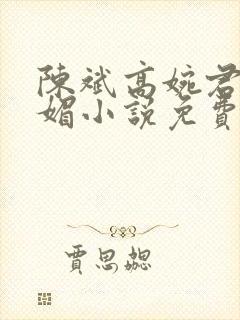 陳斌高婉君
媚小說免費
賈思勰